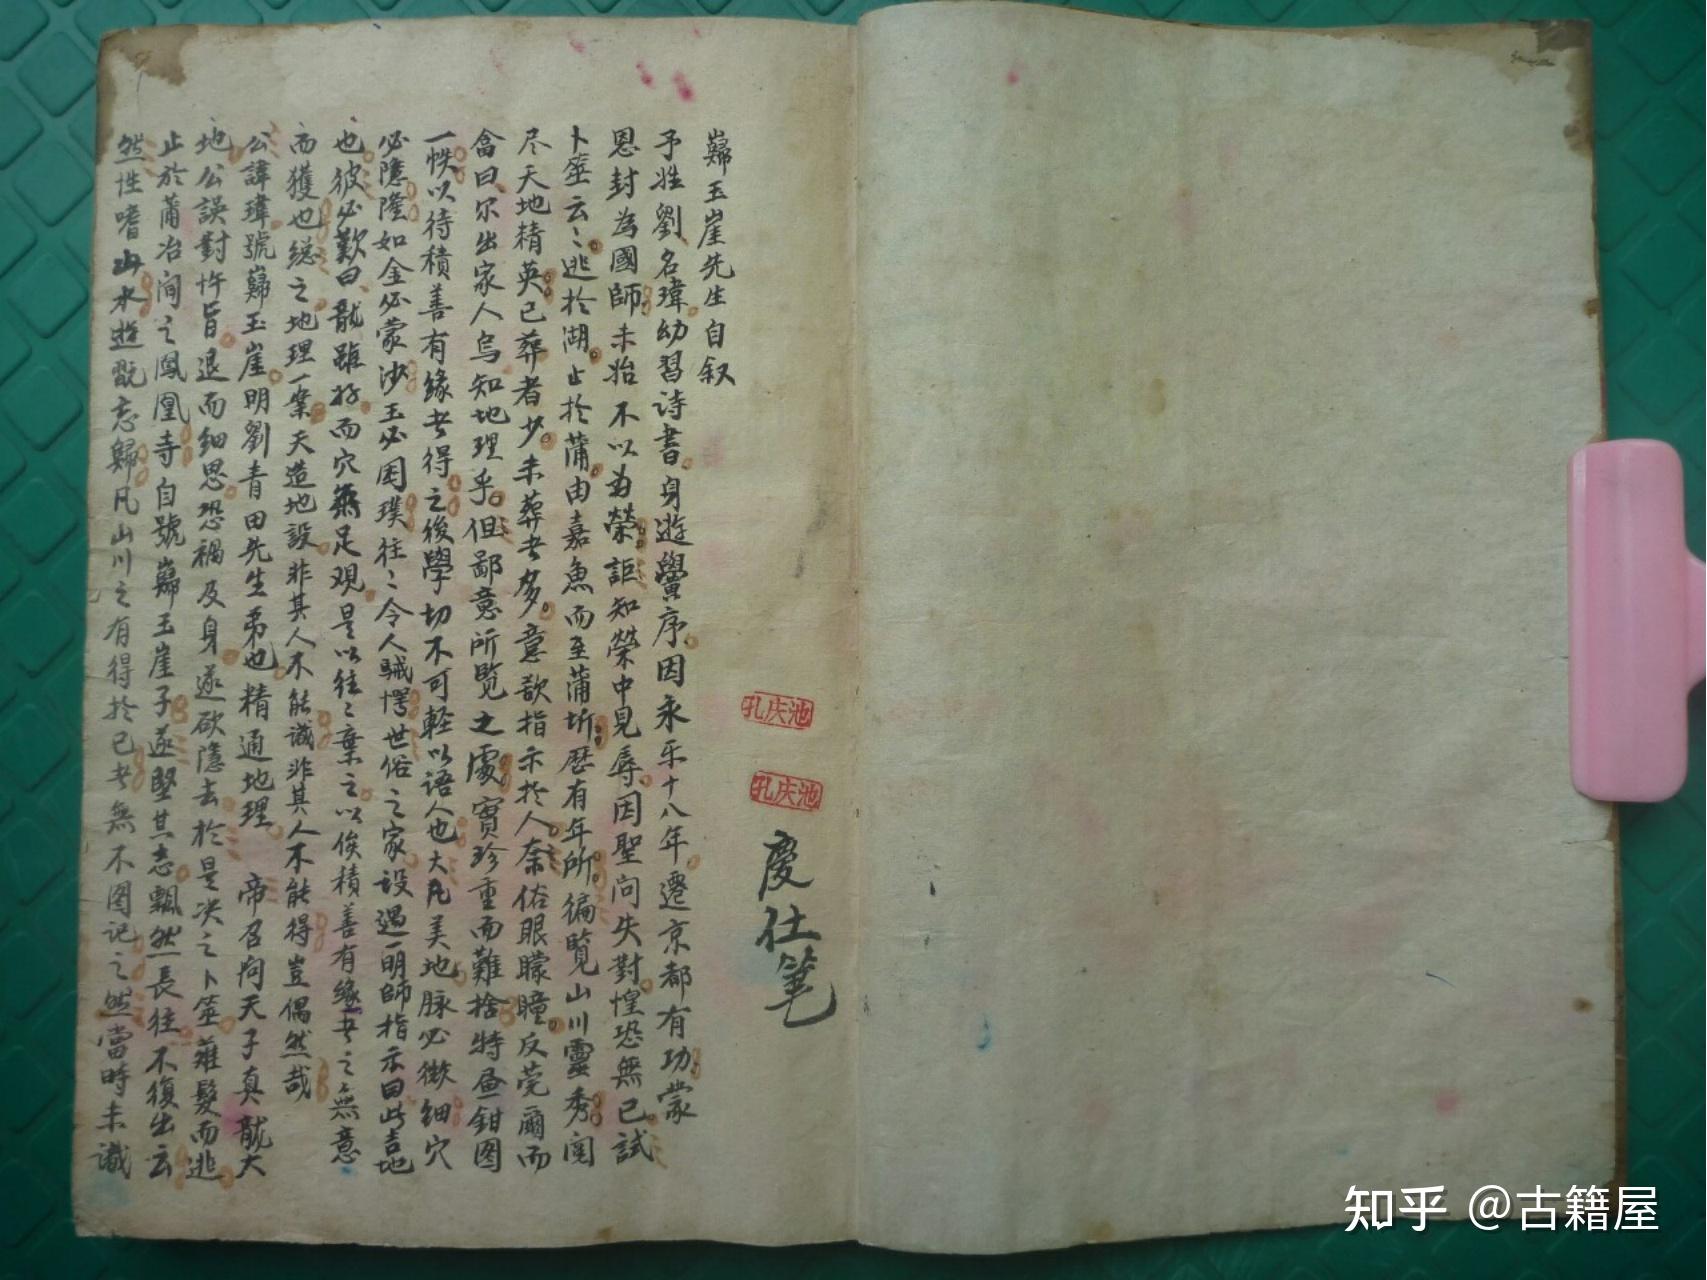 孔庆池
孔庆池
慶仕笔
歸玉崖先生自叙
予姓劉名瑋幼習诗書身遊黌序因永乐十八年遷京都有功蒙
恩封為國師未始不以為榮詎知榮中見辱因聖问失對惶恐無已試
卜筮云〻逃於湖止於蒲由嘉魚而至蒲圻歷有年所徧覽山川靈秀閱
尽天地精英已葬者少未葬者多意欲指示於人奈俗眼矇瞳反莞爾而
畲曰尔出家人烏知地理乎但鄙意所覽之處實珍重而難捨特畫鉗图
一帙以待積善有缘者得之後學切不可軽以语人也大凡美地脉必微细穴
必隱隆如金必蒙沙玉必困璞往〻令人駴愕世俗之家設遇一明師指示曰此吉地
也彼必歎曰龍雖好而穴無足观是以往〻棄之以俟積善有缘者之無意
而獲也總之地理一案天造地設非其人不能識非其人不能得豈偶然哉
公諱瑋號歸玉崖明劉青田先生弟也精通地理 帝召问天子真龍大
地公誤對忤旨退而细思恐禍及身遂欲隱去於是决之卜筮薙髮而逃
止於蒲冶间之鳳凰寺自號歸玉崖子遂堅其志飄然長往不復出云
然性嗜山水遊翫忘歸凡山川之有得於已者無不图记之然當時未識
知乎 @古籍屋